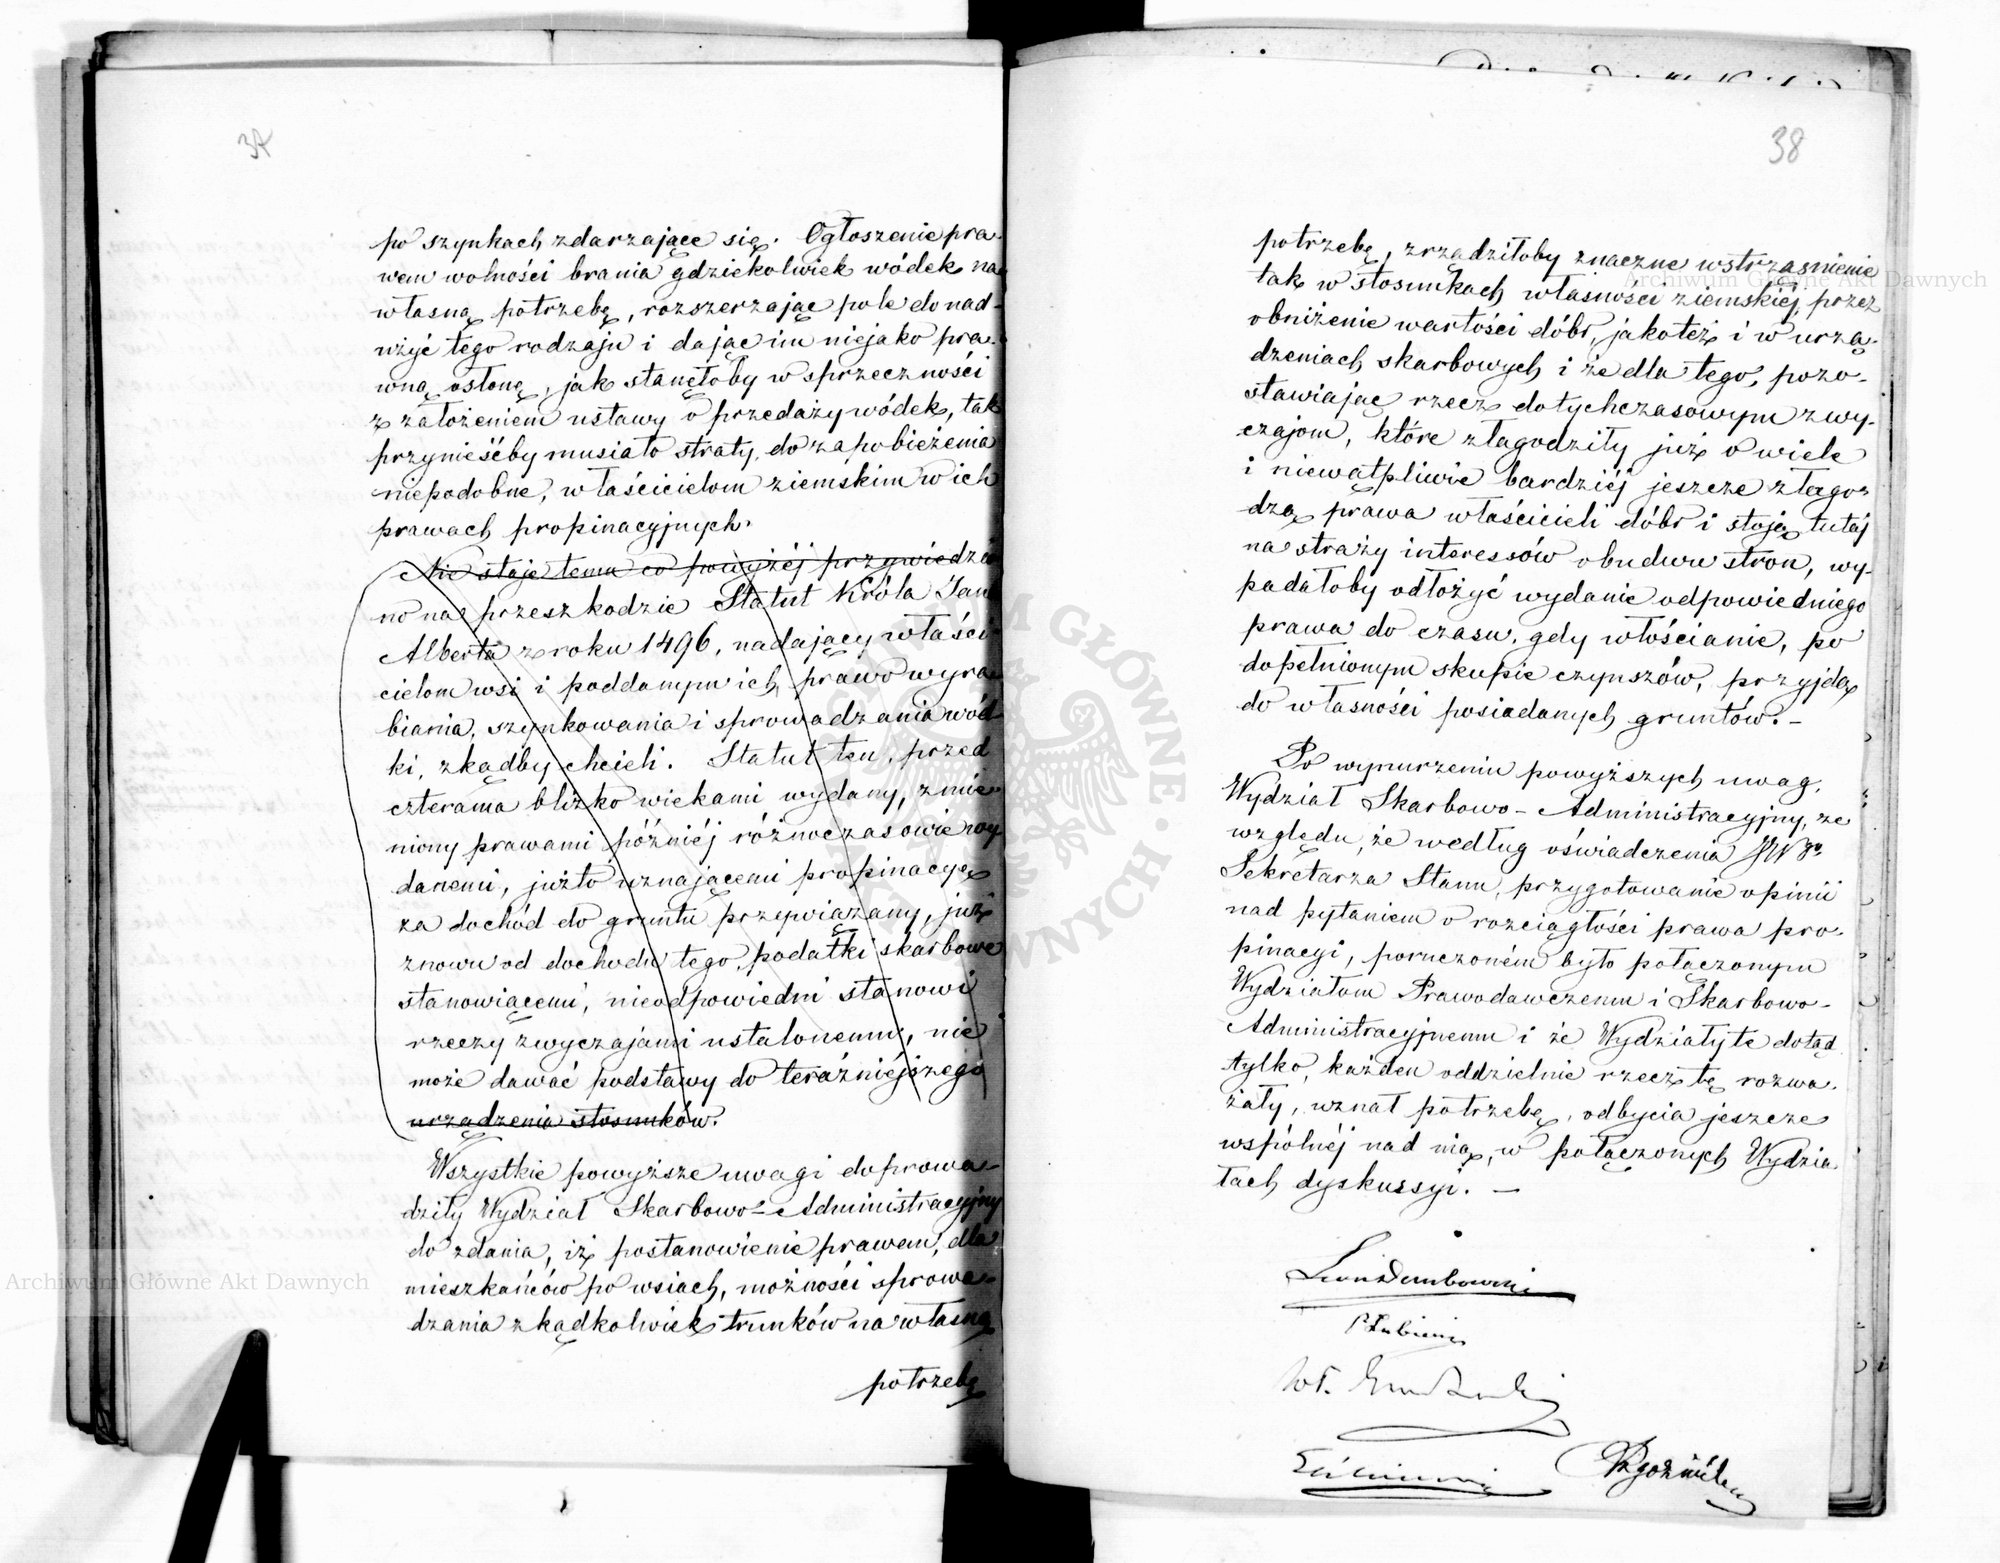 37
po szynkach zdarzające się. Ogłoszenie pra-
wem wolności brania gdziekolwiek wódek na
własną potrzebę, rozszerzając pole do nad-
użyć tego rodzaju i dając im niejako pra-
wną osłonę, jak stanęłoby w sprzeczności
z założeniem ustawy o przedaży wódek, tak
przynieśćby musiało straty, do zapobieżenia
niepodobne, właścicielom ziemskim w ich
prawach propinacyjnych.
Nie staje temu co powyżéj przywiedzio
no na przeszkodzie Statut Króla Jana
Alberta z roku 1496, nadający właści-
cielom wsi i poddanym ich prawo wyra
biania, szynkowania i sprowadzania wód-
ki, zkądby chcieli. Statut ten, przed
czterama blizko wiekami wydany, zmie-
niony prawami późniéj różnoczasowie wy
danemi, jużto uznającemi propinacyę
za dochód do gruntu przywiązany, już
znowu od dochodu tego, podatki skarbowe
stanowiącemi, nieodpowiedni stanowi
rzeczy zwyczajami ustalonemu, nie
może dawać podstawy do teraźniejszego
urządzenia stosunków.
Wszystkie powyższe uwagi doprowa-
dziły Wydział Skarbowo-Administracyjny
do zdania, iż postanowienie prawem, dla
mieszkańców po wsiach, możności sprowa-
dzania zkądkolwiek trunków na własną
potrzebę
38
potrzebę, zrządziłoby znaczne wstrząśnienie
tak w stosunkach własności ziemskiéj, przez
obniżenie wartości dóbr, jakoteż i w urzą-
dzeniach skarbowych i że dla tego, pozo-
stawiając rzecz dotychczasowym zwy-
czajom, które złagodziły już o wiele
i niewątpliwie bardziéj jeszcze złago-
dzą prawa właścicieli dóbr i stoją tutaj
na straży interessów obudwu stron, wy-
padałoby odłożyć wydanie odpowiedniego
prawa do czasu, gdy włościanie, po
dopełnionym skupie czynszów, przyjdą
do własności posiadanych gruntów. –
Po wynurzeniu powyższych uwag,
Wydział Skarbowo-Administracyjny, ze
względu, że według oświadczenia JW go
Sekretarza Stanu, przygotowanie opinii
nad pytaniem o rozciągłości prawa pro-
pinacyi, poruczoném było połączonym
Wydziałom Prawodawczemu i Skarbowo-
Administracyjnemu i że Wydziały te dotąd
tylko, każden oddzielnie rzecz tę rozwa-
żały, uznał potrzebę, odbycia jeszcze
wspólnéj nad nią, w połączonych Wydzia-
łach dyskussyi. –
Leon Dembowski
Archiwum Główne Akt Dawnych
Archiwum Główne Akt Dawnych